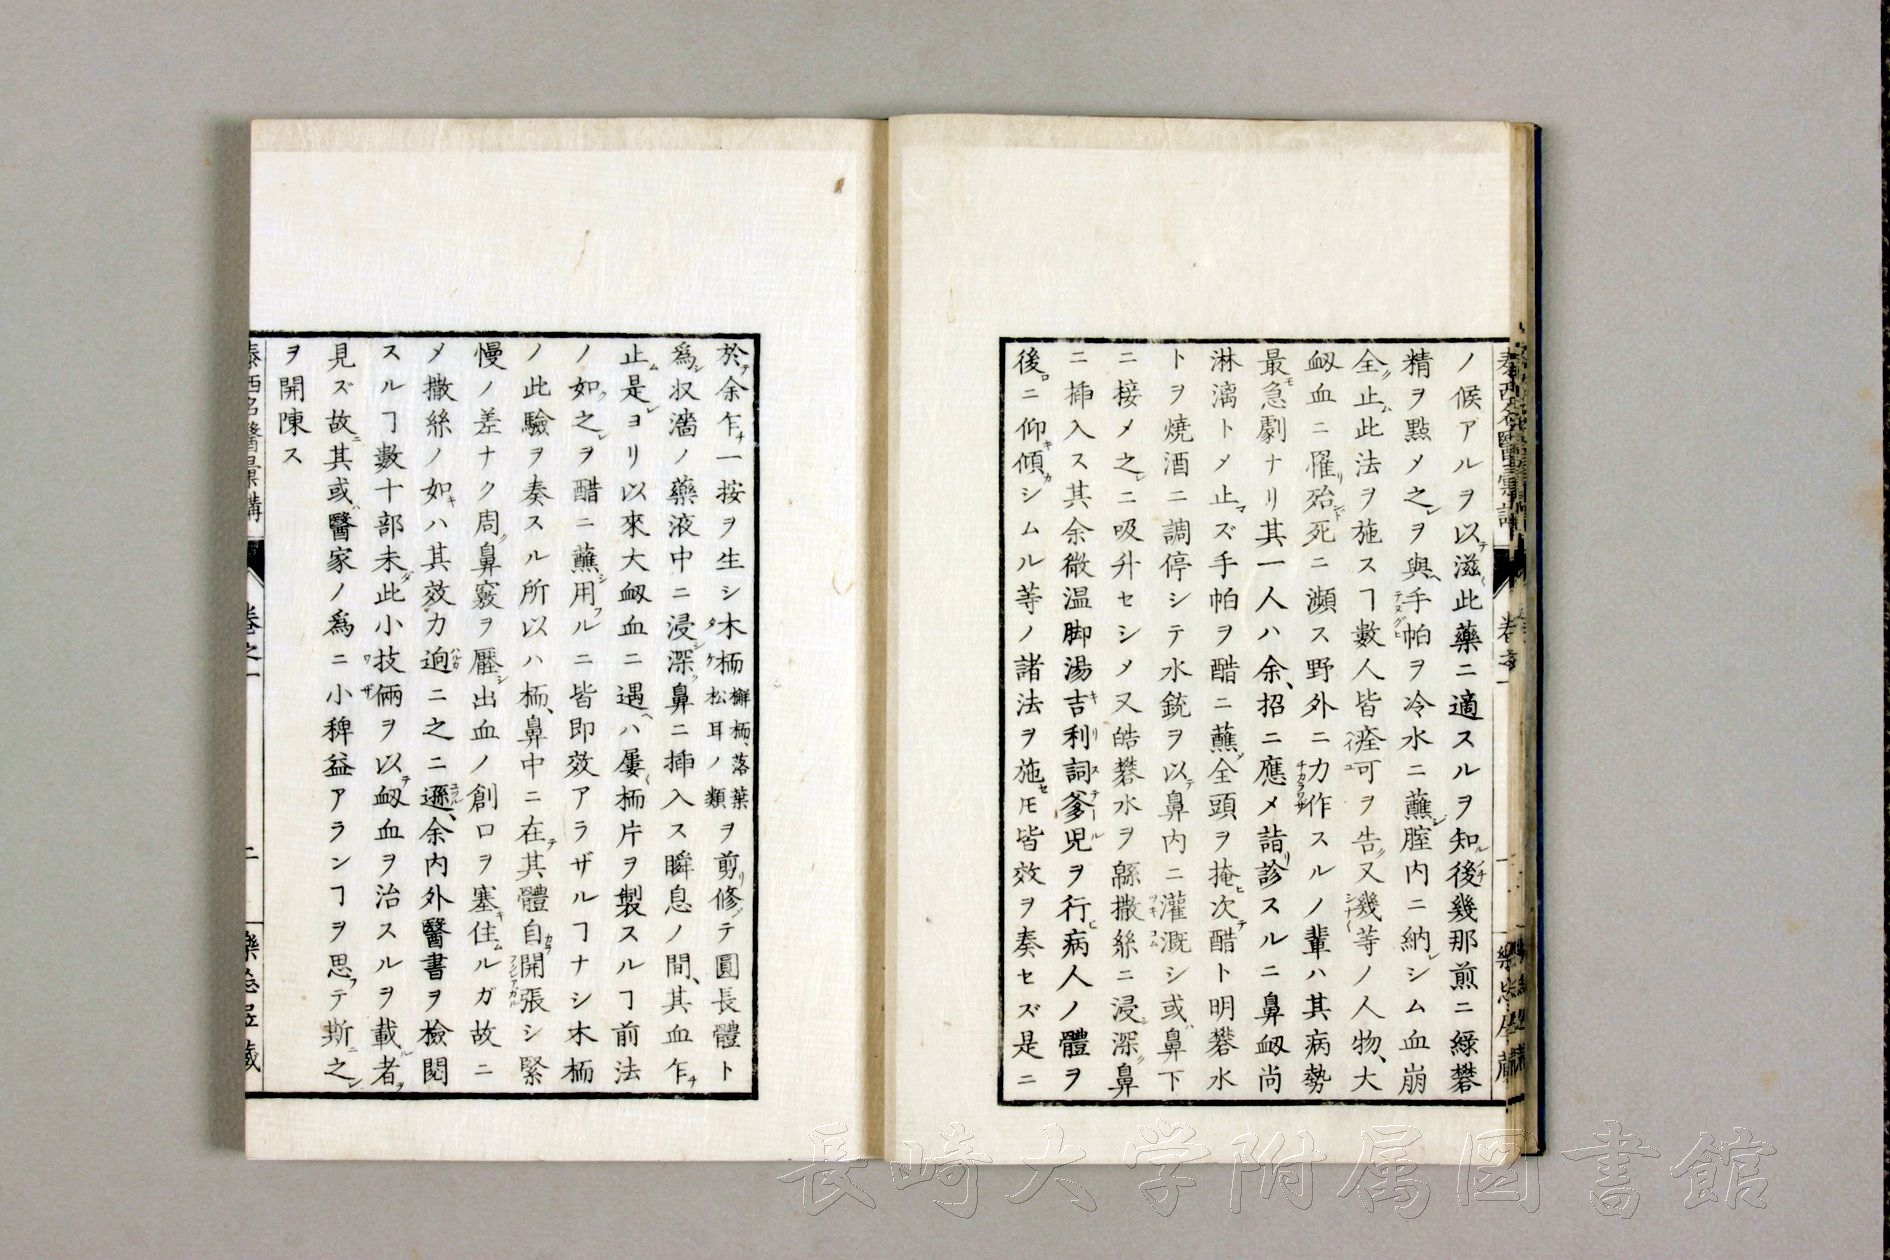 ノ候アルヲ以テ滋〻此藥ニ適スルヲ知ル後チ幾那煎ニ綠礬
精ヲ點メ之レヲ與ヘ手帕ヲ冷水ニ蘸シ腟内ニ納レシム血崩
全ク止ム此法ヲ施スヿ數人皆痊可ヲ告ク又幾等ノ人物、大
衂血ニ罹リ殆ント死ニ瀕ス野外ニ力作スルノ輩ハ其病勢
最モ急劇ナリ其一人ハ余、招ニ應メ詣リ診スルニ鼻衂尚
淋漓トメ止マズ手帕ヲ醋ニ蘸メ全頭ヲ掩ヒ次テ醋ト明礬水
トヲ燒酒ニ調停シテ水銃ヲ以テ鼻内ニ灌漑シ或ハ鼻下
ニ接メ之レニ吸升セシメ又皓礬水ヲ緜撒絲ニ浸シ深ク鼻
ニ挿入ス其余微温脚湯吉利詞爹兒ヲ行ヒ病人ノ體ヲ
後ロニ仰キ傾カシムル等ノ諸法ヲ施セ𪜈皆效ヲ奏セズ是ニ
於テ余乍チ一按ヲ生シ木栭檞栭、落葉松耳ノ類ヲ剪リ修メテ圓長體ト
爲シ収濇ノ藥液中ニ浸シ深ク鼻ニ挿入ス瞬息ノ間、其血乍チ
止ム是レヨリ以來大衂血ニ遇ヘハ屢〻栭片ヲ製スルヿ前法
ノ如ク之レヲ醋ニ蘸シ用フルニ皆即效アラザルヿナシ木栭
ノ此驗ヲ奏スル所以ハ栭、鼻中ニ在テ其體自ラ開張シ緊
慢ノ差ナク周ク鼻竅ヲ壓シ出血ノ創口ヲ塞キ住ムルガ故ニ
メ撒絲ノ如キハ其效力逈ニ之ニ遜ル、余内外醫書ヲ檢閲
スルヿ數十部未タ此小技倆ヲ以テ衂血ヲ治スルヲ載ル者ヲ
見ズ故ニ其或ハ醫家ノ爲ニ小稗益アランヿヲ思フテ斯ニ之レ
ヲ開陳ス
泰西名醫彙講
卷之一
二
長崎大学附属図書館